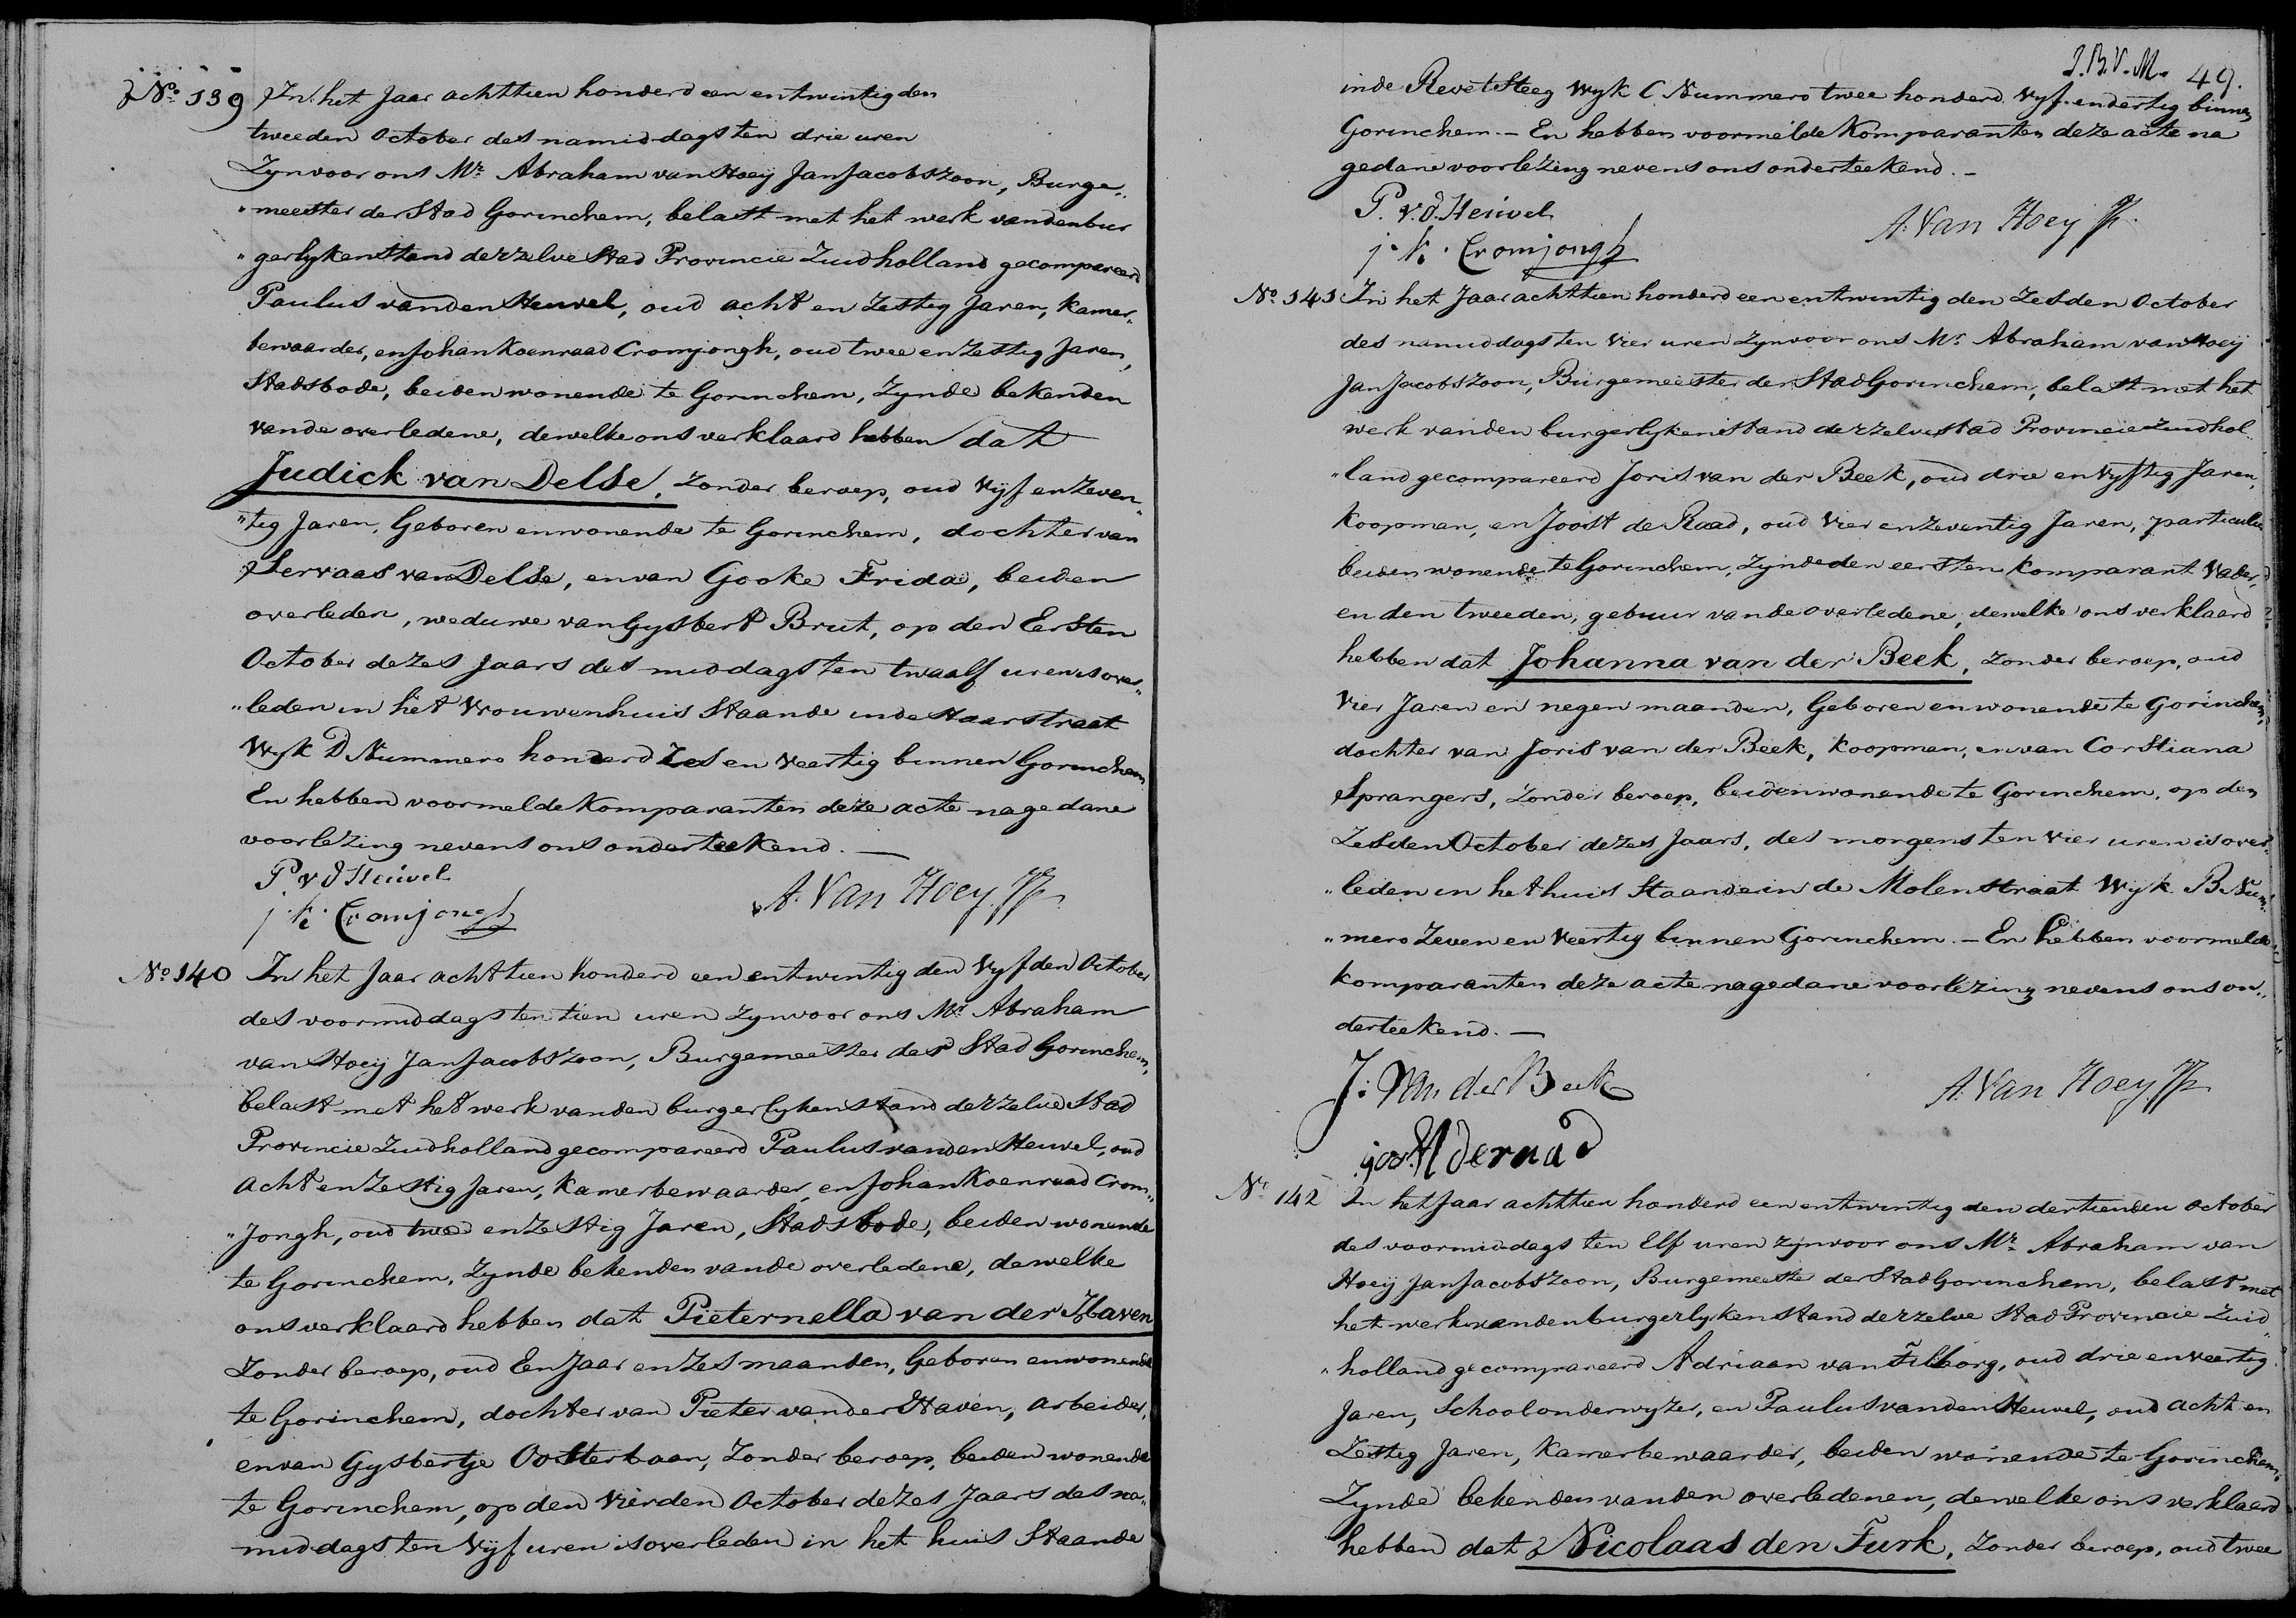 No. 139 In het Jaar achttien honderd een en twintig den
tweeden October des namiddags ten drie uren
Zyn voor ons Mr. Abraham van Hoeij JanJacobszoon, Burge„
„meester der Stad Gorinchem, belast met het werk van den bur
„gerlyken Stand derzelve Stad Provincie Zuidholland gecompareerd
Paulus van den Heuvel, oud acht en Zestig Jaren, Kamer„
bewaarder, en Johan Koenraad Cromjongh, oud twee en Zestig Jaren,
Stadsbode, beiden wonende te Gorinchem, Zynde bekenden
van de overledene, dewelke ons verklaard hebben dat
Judick van Delse, Zonder beroep, oud Vyf en Zeven„
„tig Jaren, Geboren en wonende te Gorinchem, dochter van
Servaas van Delse, en van Gooke Frida, beiden
overleden, weduwe van Gysbert Brut, op den Eersten
October dezes Jaars des middags ten twaalf uren is over„
„leden in het Vrouwenhuis Staande in de Haarstraat
Wyk D Nummero honderd Zes en Veertig binnen Gorinchem
En hebben voormelde Komparanten deze acte na gedane
voorlezing nevens ons onderteekend. —
P v d Heuvel
j. k. Cromjongh
A. Van Hoey JJz
No. 140 In het Jaar achttien honderd een en twintig den Vyfden October
des voormiddags ten tien uren Zyn voor ons Mr. Abraham
van Hoeij JanJacobszoon, Burgemeester der Stad Gorinchem,
belast met het werk van den burgerlyken Stand derzelve Stad
Provincie Zuidholland gecompareerd Paulus van den Heuvel, oud
acht en Zestig Jaren, Kamerbewaarder, en Johan Koenraad Crom„
„Jongh, oud twee en Zestig Jaren, Stadsbode, beiden wonende
te Gorinchem, Zynde bekenden van de overledene, dewelke
ons verklaard hebben dat Pieternella van der Haven
Zonder beroep, oud Een Jaar en Zes maanden, Geboren en wonende
te Gorinchem, dochter van Pieter van der Haven, arbeider,
en van Gysbertje Oosterbaan, Zonder beroep, beiden wonende
te Gorinchem, op den Vierden October dezes Jaars des na„
middags ten Vyf uren is overleden in het huis Staande
J. B. V. M. 49.
in de Revetsteeg Wyk C Nummero twee honderd Vyf en dertig binnen
Gorinchem. — En hebben voormelde Komparanten deze acte na
gedane voorlezing nevens ons onderteekend. —
P. v. d. Heuvel
j. k. Cromjongh
A. Van Hoey JJz
No. 141 In het Jaar achttien honderd een en twintig den Zesden October
des namiddags ten Vier uren Zyn voor ons Mr. Abraham van Hoeij
JanJacobszoon, Burgemeester der Stad Gorinchem, belast met het
werk van den burgerlyken Stand derzelve Stad Provincie Zuidhol
„land gecompareerd Joris van der Beek, oud drie en Vyftig Jaren,
Koopman, en Joost de Raad, oud Vier en Zeventig Jaren, particulier
beiden wonende te Gorinchem, Zynde den eersten Komparant Vader,
en den tweeden, gebuur van de overledene, dewelke ons verklaard
hebben dat Johanna van der Beek, Zonder beroep, oud
Vier Jaren en negen maanden, Geboren en wonende te Gorinchem,
dochter van Joris van der Beek, Koopman, en van Corstiana
Sprangers, Zonder beroep, beiden wonende te Gorinchem, op den
Zesden October dezes Jaars, des morgens ten Vier uren is over„
„leden in het huis Staande in de Molenstraat Wyk B Num„
„mero Zeven en Veertig binnen Gorinchem. — En hebben voormelde
Komparanten deze acte na gedane voorlezing nevens ons on„
derteekend. —
J: Van der Beek
A. Van Hoey JJz
joost deraad
No. 142 In het Jaar achttien honderd een en twintig den dertienden October
des voormiddags ten Elf uren Zyn voor ons Mr. Abraham van
Hoeij JanJacobszoon, Burgemeester der Stad Gorinchem, belast met
het werk van den burgerlyken Stand derzelve Stad Provincie Zuid„
„holland gecompareerd Adriaan van Tilborg, oud drie en veertig
Jaren, Schoolonderwyzer, en Paulus van den Heuvel, oud acht en
Zestig Jaren, Kamerbewaarder, beiden wonende te Gorinchem,
Zynde bekenden van den overledenen, dewelke ons verklaard
hebben dat Nicolaas den Turk, Zonder beroep, oud twee